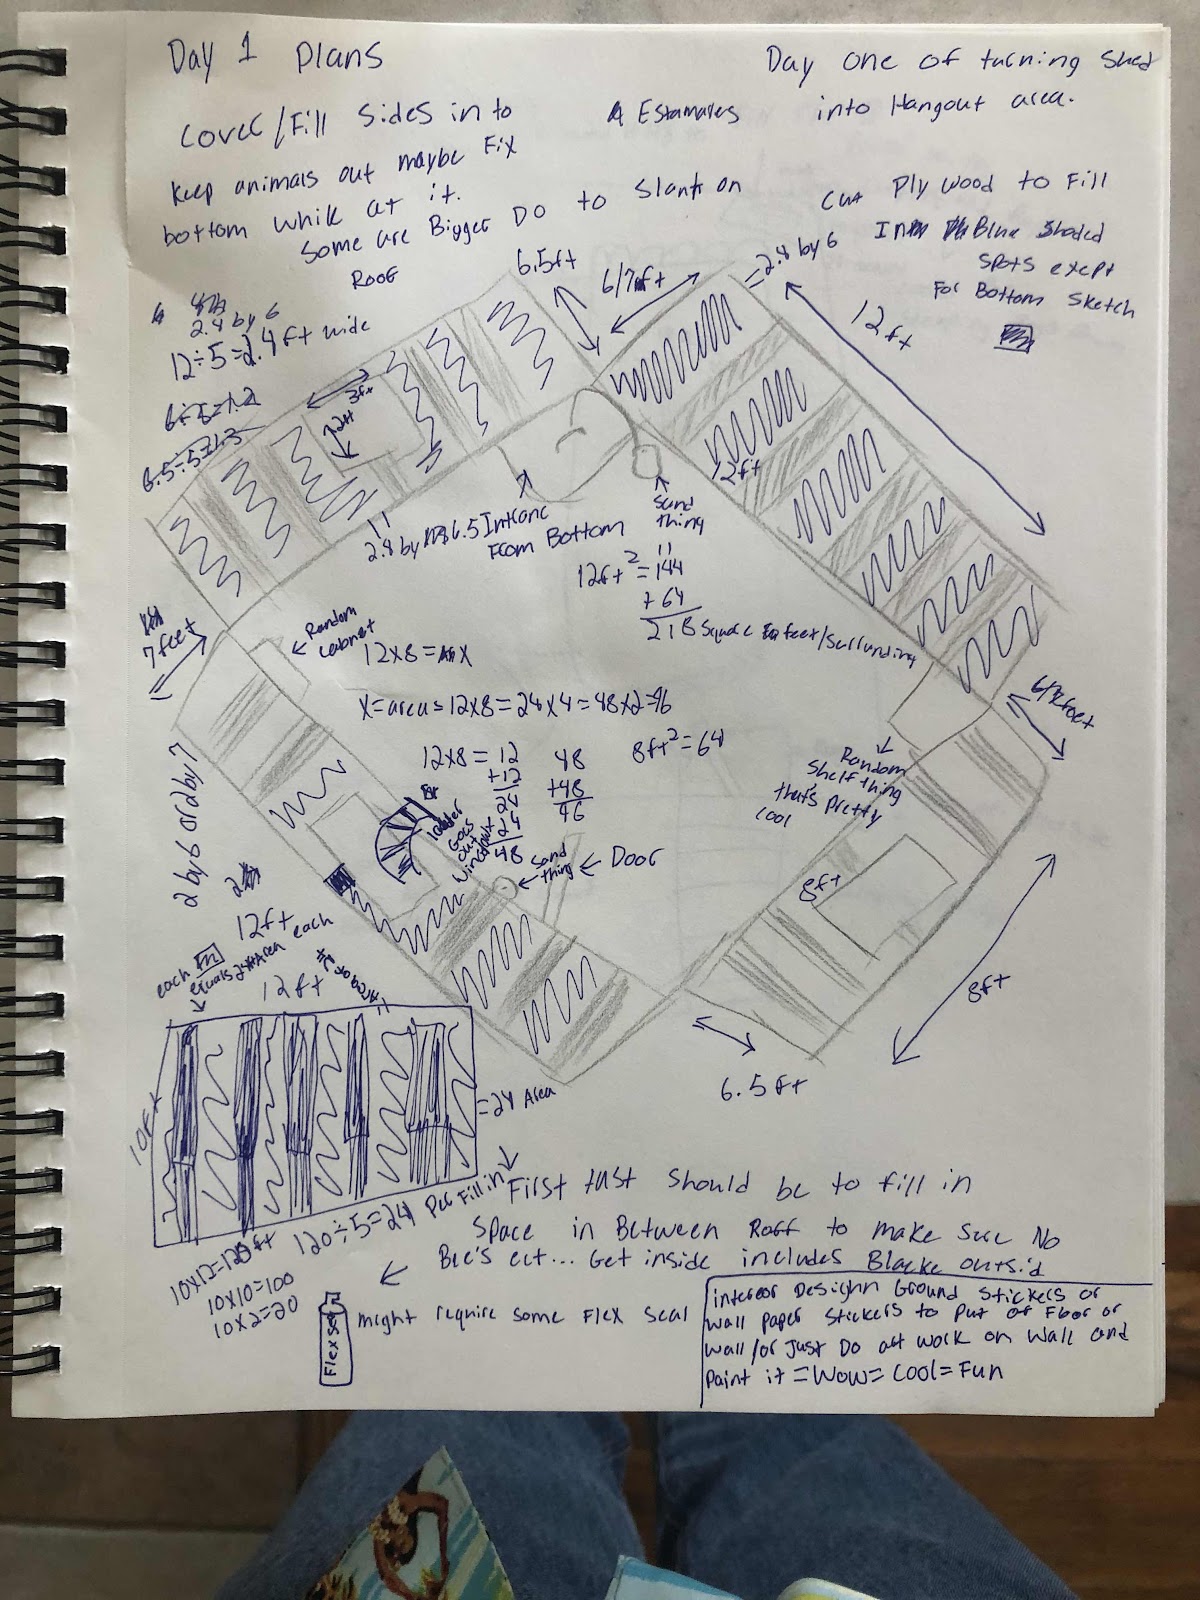 Day 1 Plans
Day one of turning Shed
into Hangout area.
Cover/Fill Sides in to
Estamates
Keep animals out maybe Fix
bottom while at it.
Some are Bigger Do to Slants on
Roof
Cut Ply wood to Fill
In Blue Shaded
Spots exept
For Bottom Sketch
6.5ft
6/7ft
=2.4 by 6
12ft
2.4 by 6
12÷5=2.4ft wide
6÷5=1.2
6.5÷5=1.3
3ft
12ft
2.4 by 6.5
Intranc
From Bottom
Sand
thing
12ft²=144
+64
218 Square feet/Surrunding
7 feet
Random
cabnet
12x8=X
X=area=12x8=24x4=48x2=96
12x8=12
+12
24
24
48
48
+48
96
8ft²=64
6/7 feet
Random
Shelf thing
that's pretty
cool
ladder
Goes
out
window
Sand
thing
Door
8ft
8ft
2 by 6 or 2 by 7
12ft
each
each
equals 24 Area
12ft
10ft
=24 Area
6.5ft
10x12=120ft
120÷5=24 Per Fill in
10x10=100
10x2=20
First tast Should be to fill in
Space in Between Roff to make Sure No
Bee's ect... Get inside includes Blacke outsid
Flex Seal
might require some Flex Seal
interor Designn Ground Stickers or
Wall paper Stickers to Put of Floor or
Wall/or Just Do art work on Wall and
Paint it =Wow= Cool= Fun